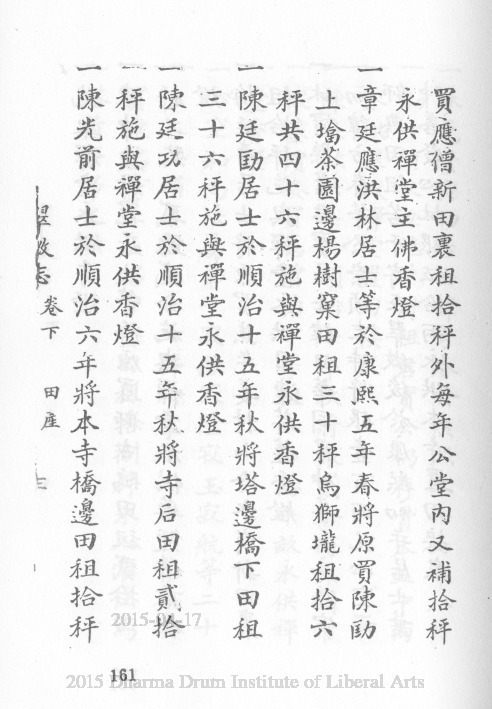 買應僧新田裏租拾秤外每年公堂內又補拾秤
永供禪堂主佛香燈
一章廷應洪林居士等於康熙五年春將原買陳勛
土壋茶園邊楊樹窠田租三十秤烏獅壠租拾六
秤共四十六秤施與禪堂永供香燈
一陳廷勛居士於順治十五年秋將塔邊橋下田租
三十六秤施與禪堂永供香燈
一陳廷功居士於順治十五年秋將寺后田租貳拾
秤施與禪堂永供香燈
一陳光前居士於順治六年將本寺橋邊田租拾秤
卷下 田產
161
2015-01-17
2015 Dharma Drum Institute of Liberal Arts